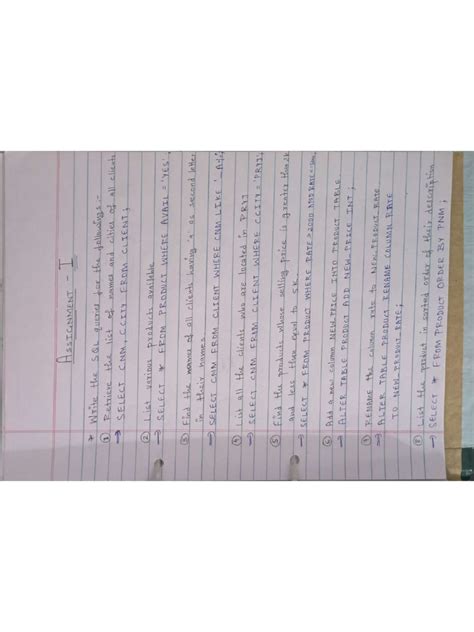 ASSIGNMENT - I
* Write the SQL queries for the followings:-
① Retrieve the list of names and cities of all clients
→ SELECT CNM, CCITY FROM CLIENT;
② List various products available
→ SELECT * FROM PRODUCT WHERE AVAIL = 'YES';
③ Find the names of all clients having 'a' as second letter
in their names.
→ SELECT CNM FROM CLIENT WHERE CNM LIKE '_A%'
④ List all the clients who are located in PRJ
→ SELECT CNM FROM CLIENT WHERE CCITY = 'PRJ';
⑤ Find the products whose selling price is greater than
and less than equal to 5K.
→ SELECT * FROM PRODUCT WHERE RATE > 2000 AND RATE
⑥ Add a new column NEW PRICE INTO PRODUCT TABLE
ALTER TABLE PRODUCT ADD NEW PRICE INT;
⑦ RENAME the column rate to NEW PRODUCT RATE
→ ALTER TABLE PRODUCT RENAME COLUMN RATE
TO NEW PRODUCT RATE;
⑧ List the product in sorted order of their description
→ SELECT * FROM PRODUCT ORDER BY PNM;